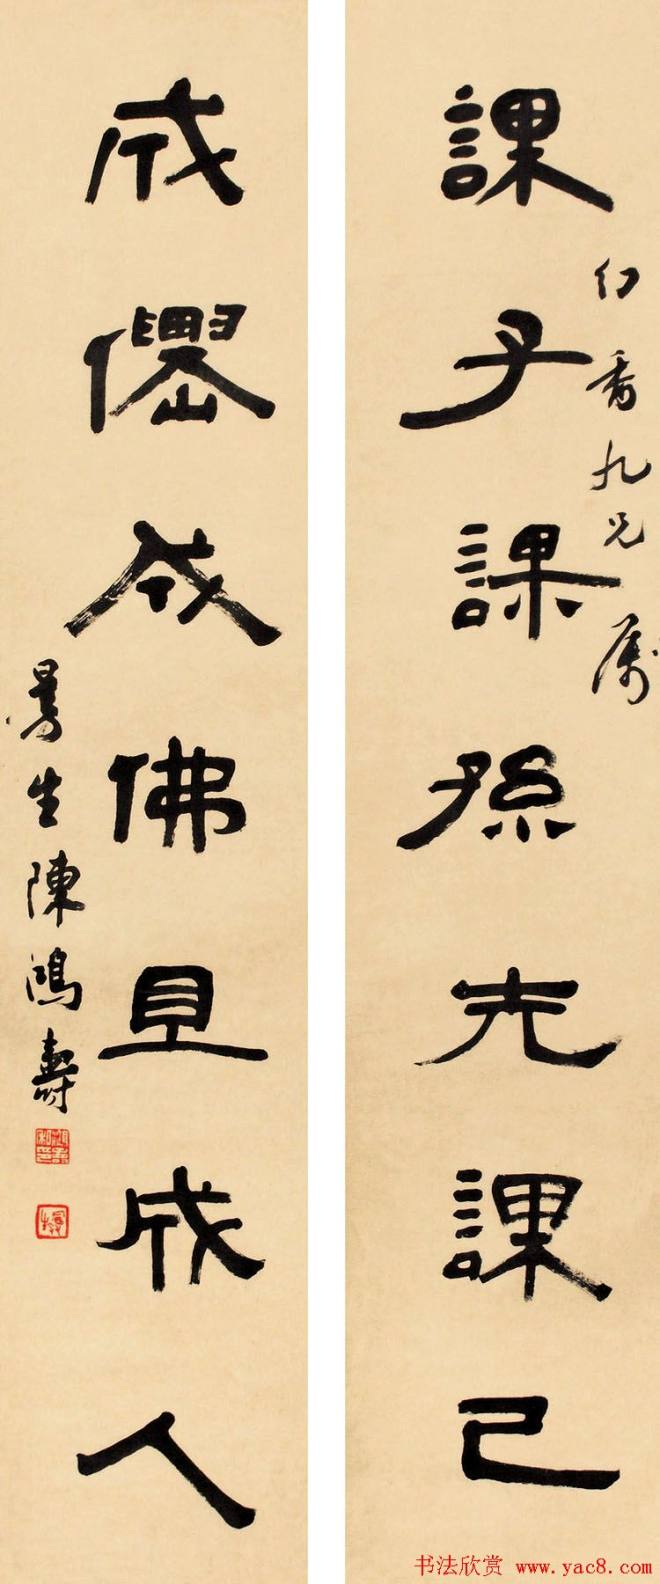 課子課孫先課己
幻香九兄屬
成僊成佛且成人
曼生陳鴻壽
书法欣赏 www.yac8.com